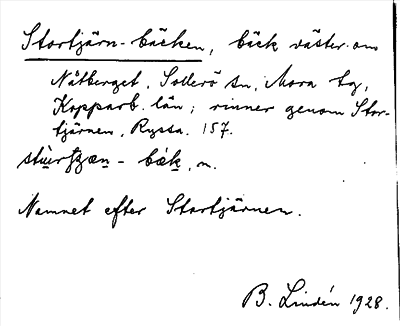 Stortjärn-bäcken, bäck väster om
Nåtberget, Sollerö sn, Mora tg,
Kopparb. län; rinner genom Stor-
tjärnen, Ryssa. 157.
bäk, m.
Namnet efter Stortjärnen.
B. Lindén 1928.